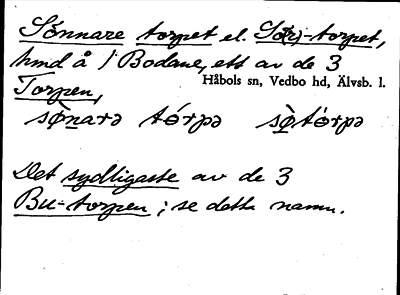 Sönnare torpet el. Sö(r)-torpet,
hmd å 1 Bodane, ett av de 3
Håbols sn, Vedbo hd, Älvsb. l.
Torpen,
sö̀narə tórpə sö̀tórpə
Det sydligaste av de 3
Bu-torpen; se detta namn.